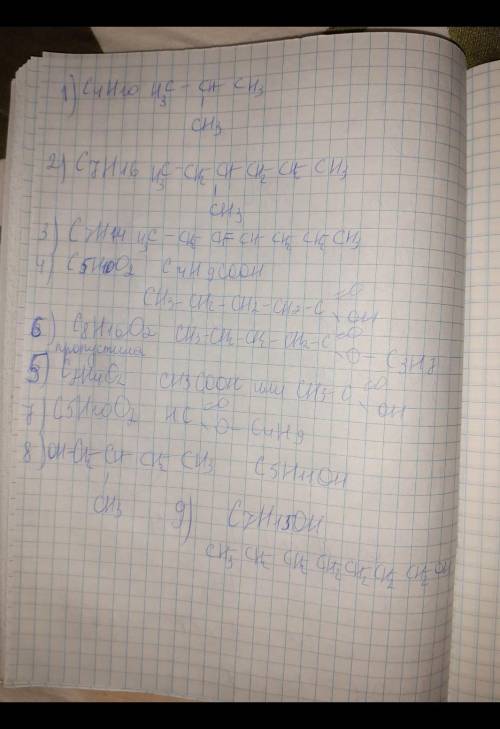 1) C4H10 H3C - CH - CH3
CH3
2) C7H16 H3C - CH2 - CH - CH2 - CH2 - CH3
CH3
3) C7H14 H3C - CH2 - CH = CH - CH2 - CH2 - CH3
4) C5H10O2 C4H9COOH
CH3 - CH2 - CH2 - CH2 - C =O OH
6) C8H16O2 CH3 - CH2 - CH2 - CH2 - C =O O - C3H8
пропустила
5) C2H4O2 CH3COOH или CH3 - C =O OH
7) C5H10O2 HC =O O - C4H9
8) OH - CH2 - CH - CH2 - CH3 C5H11OH
CH3
9) C7H15OH
CH3 - CH2 - CH2 - CH2 - CH2 - CH2 - CH2 - OH